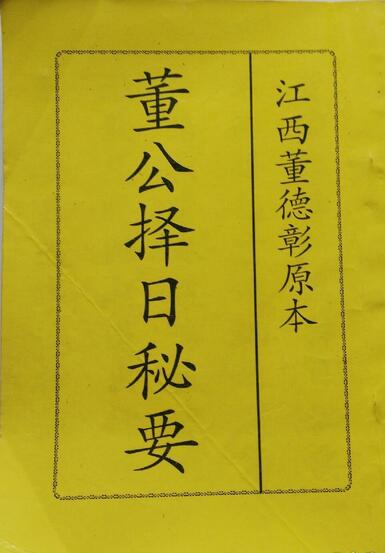 江西董德彰原本
董公择日秘要